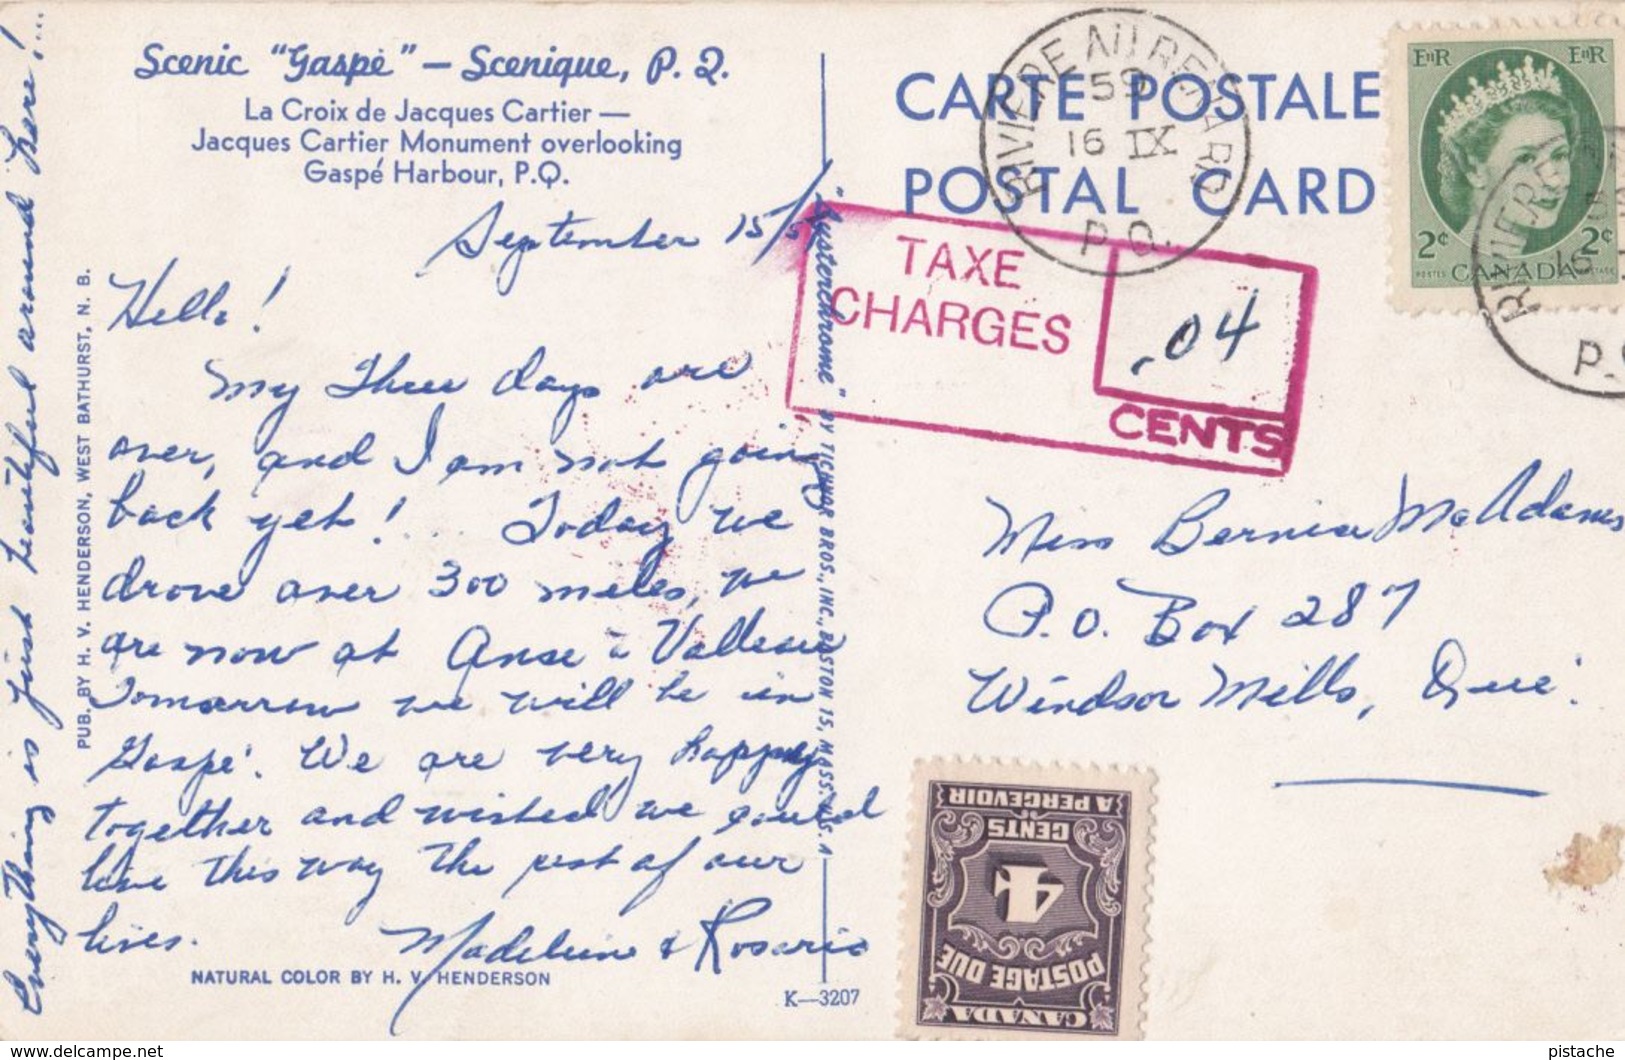 Scenic "Gaspé" — Scenique, P. Q.
La Croix de Jacques Cartier —
Jacques Cartier Monument overlooking
Gaspé Harbour, P.Q.
September 15/59
Hello!
My three days are
over, and I am not going
back yet! ... Today we
drove over 300 miles, we
are now at Anse à Valleau
Tomorrow we will be in
Gaspé. We are very happy
together and wished we could
live this way the rest of our
lives.
Madeleine & Rosario
Everything is just beautiful around here!...
PUB. BY H. V. HENDERSON, WEST BATHURST, N. B.
NATURAL COLOR BY H. V. HENDERSON
K—3207
"Lusterchrome" BY TICHNOR BROS., INC., BOSTON 15, MASS., U. S. A.
CARTE POSTALE
POSTAL CARD
RIVIERE AU RENARD
59
16 IX
P.Q.
TAXE
CHARGES
.04
CENTS
EIIR EIIR
2¢ 2¢
POSTES CANADA POSTAGE
RIVIERE
16
P.Q
Miss Bernice McAdams
P.O. Box 287
Windsor Mills, Que.
CANADA
POSTAGE DUE
4
CENTS
A PERCEVOIR
www.delcampe.net
pistache